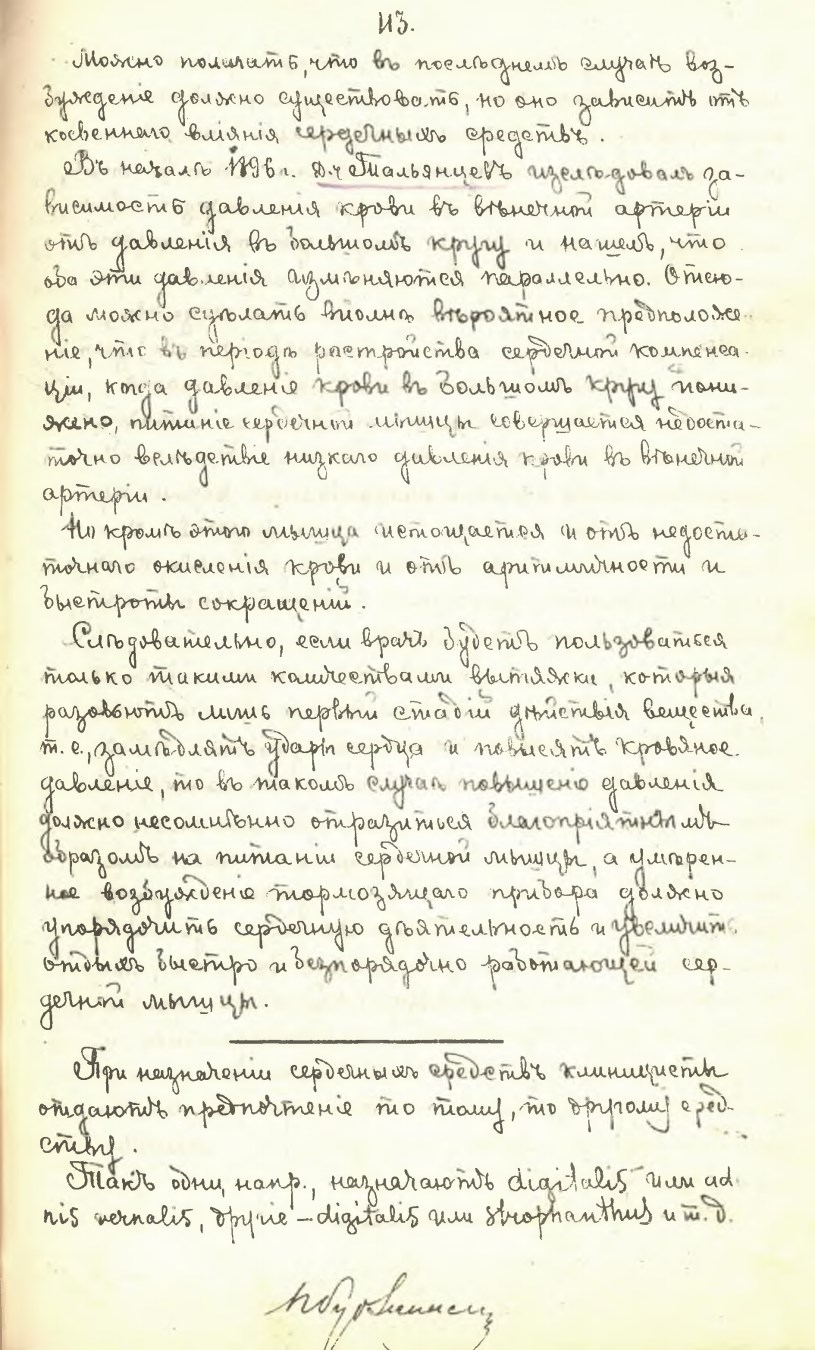 113.
Можно полагать, что въ послѣднемъ случаѣ воз-
бужденіе должно существовать, но оно зависитъ отъ
косвеннаго вліянія сердечныхъ средствъ.
Въ началѣ 1896 г. Д-ч Тальянцевъ изслѣдовалъ за-
висимость давленія крови въ вѣнечной артеріи
отъ давленія въ большомъ кругу и нашелъ, что
оба эти давленія измѣняются параллельно. Отсю-
да можно сдѣлать вполнѣ вѣроятное предположе-
ніе, что въ періодъ растройства сердечной компенса-
ціи, когда давленіе крови въ большомъ кругу пони-
жено, питаніе сердечной мышцы совершается недоста-
точно вслѣдствіе низкаго давленія крови въ вѣнечной
артеріи.
Но кромѣ этого мышца истощается и отъ недоста-
точнаго окисленія крови и отъ аритмичности и
быстроты сокращеній.
Слѣдовательно, если врачъ будетъ пользоваться
только такими количествами вытяжки, которыя
разовьютъ лишь первый стадій дѣйствія вещества,
т. е., замѣдлятъ удары сердца и повысятъ кровяное
давленіе, то въ такомъ случаѣ повышеніе давленія
должно несомнѣнно отразиться благопріятнымъ
образомъ на питаніи сердечной мышцы, а умѣрен-
ное возбужденіе тормозящаго прибора должно
упорядочить сердечную дѣятельность и увеличить
отдыхъ быстро и безпорядочно работающей сер-
дечной мышцы.
При назначеніи сердечныхъ средствъ клиницисты
отдаютъ предпочтеніе то тому, то другому сред-
ству.
Такъ одни, напр., назначаютъ digitalis или ado
nis vernalis, другіе – digitalis или strophanthus и т. д.